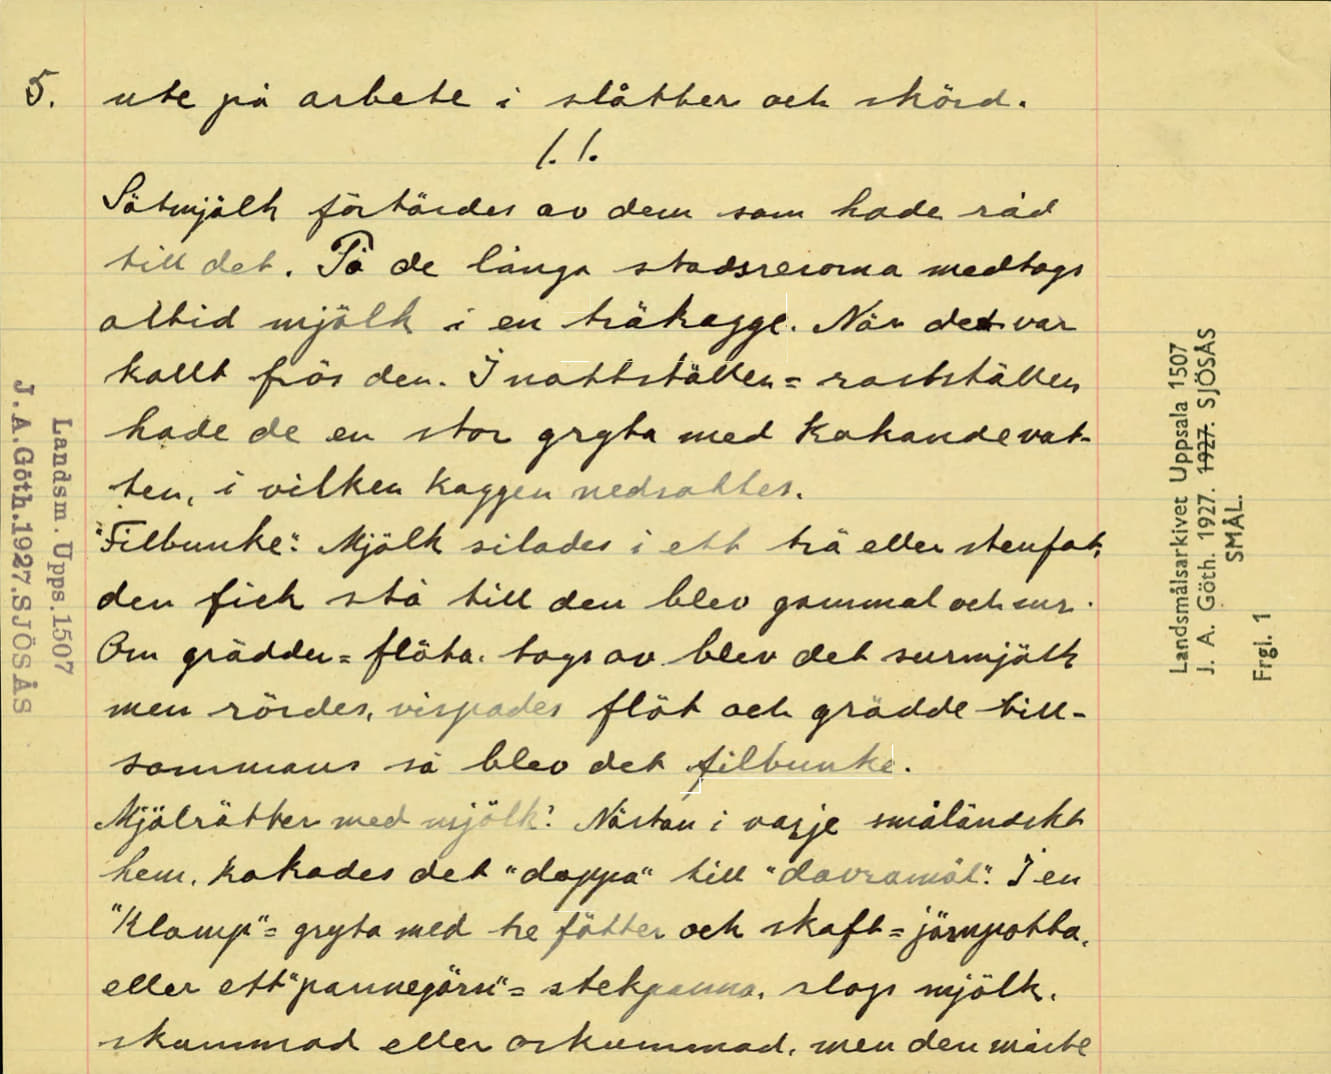 5.
ute på arbete i slåtter och skörd.
1.1.
Sötmjölk förtärdes av dem som hade råd
till det. På de långa stadsresorna medtogs
altid mjölk i en träkagge. När det var
kallt frös den. I nattställen = rastställen
hade de en stor gryta med kokande vat-
ten, i vilken kaggen nedsattes.
"Filbunke": Mjölk silades i ett trä eller stenfat,
den fick stå till den blev gammal och sur.
Om grädden = flöta. togs av blev det surmjölk
men rördes, vispades flöt och grädde till-
sammans så blev det filbunke.
Mjölrätter med mjölk: Nästan i varje småländskt
hem, kokades det "doppa" till "davramål". I en
"Klamp" = gryta med tre fötter och skaft = järnpotta,
eller ett "pannejärn" = stekpanna, slogs mjölk,
skummad eller oskummad, men den måste
Landsm. Upps. 1507
J.A.Göth.1927.SJÖSÅS
Landsmålsarkivet Uppsala 1507
J. A. Göth. 1927. 1927. SJÖSÅS
SMÅL.
Frgl. 1